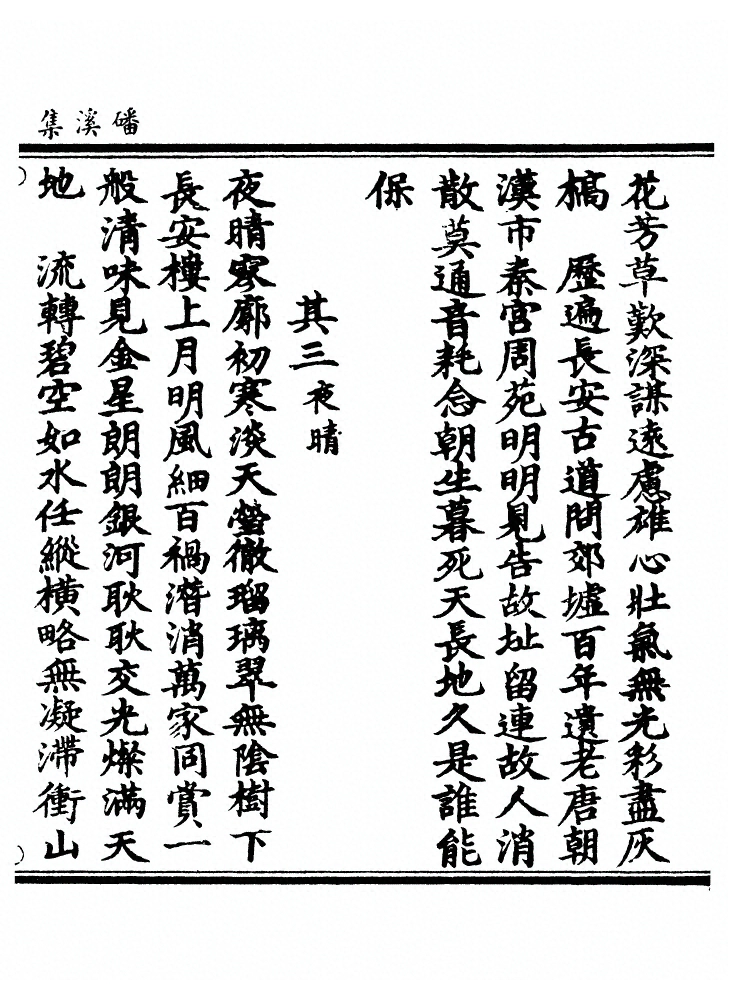 磻溪集
花芳草歎深謀遠慮雄心壯氣無光彩盡灰
槁　歷遍長安古道問郊墟百年遺老唐朝
漢市秦宮周苑明明見告故址留連故人消
散莫通音耗念朝生暮死天長地久是誰能
保
其三夜晴
夜晴寥廓初寒淡天瑩徹瑠璃翠無陰樹下
長安樓上月明風細百禍潛消萬家同賞一
般清味見金星朗朗銀河耿耿交光燦滿天
地　流轉碧空如水任縱橫略無凝滯衝山